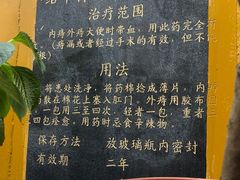 治疗范围
内痔外痔大便时带血,用此药完全有
(痔漏或者经过手术的有效,但不
用法
将患处洗净,将药棉捻成薄片,内
敷在棉花上塞入肛门,外痔用胶布
一包用三至四次,轻者一包,重者
四包痊愈,用药时忌食辛辣物。
保存方法 放玻璃瓶内密封
有效期 二年